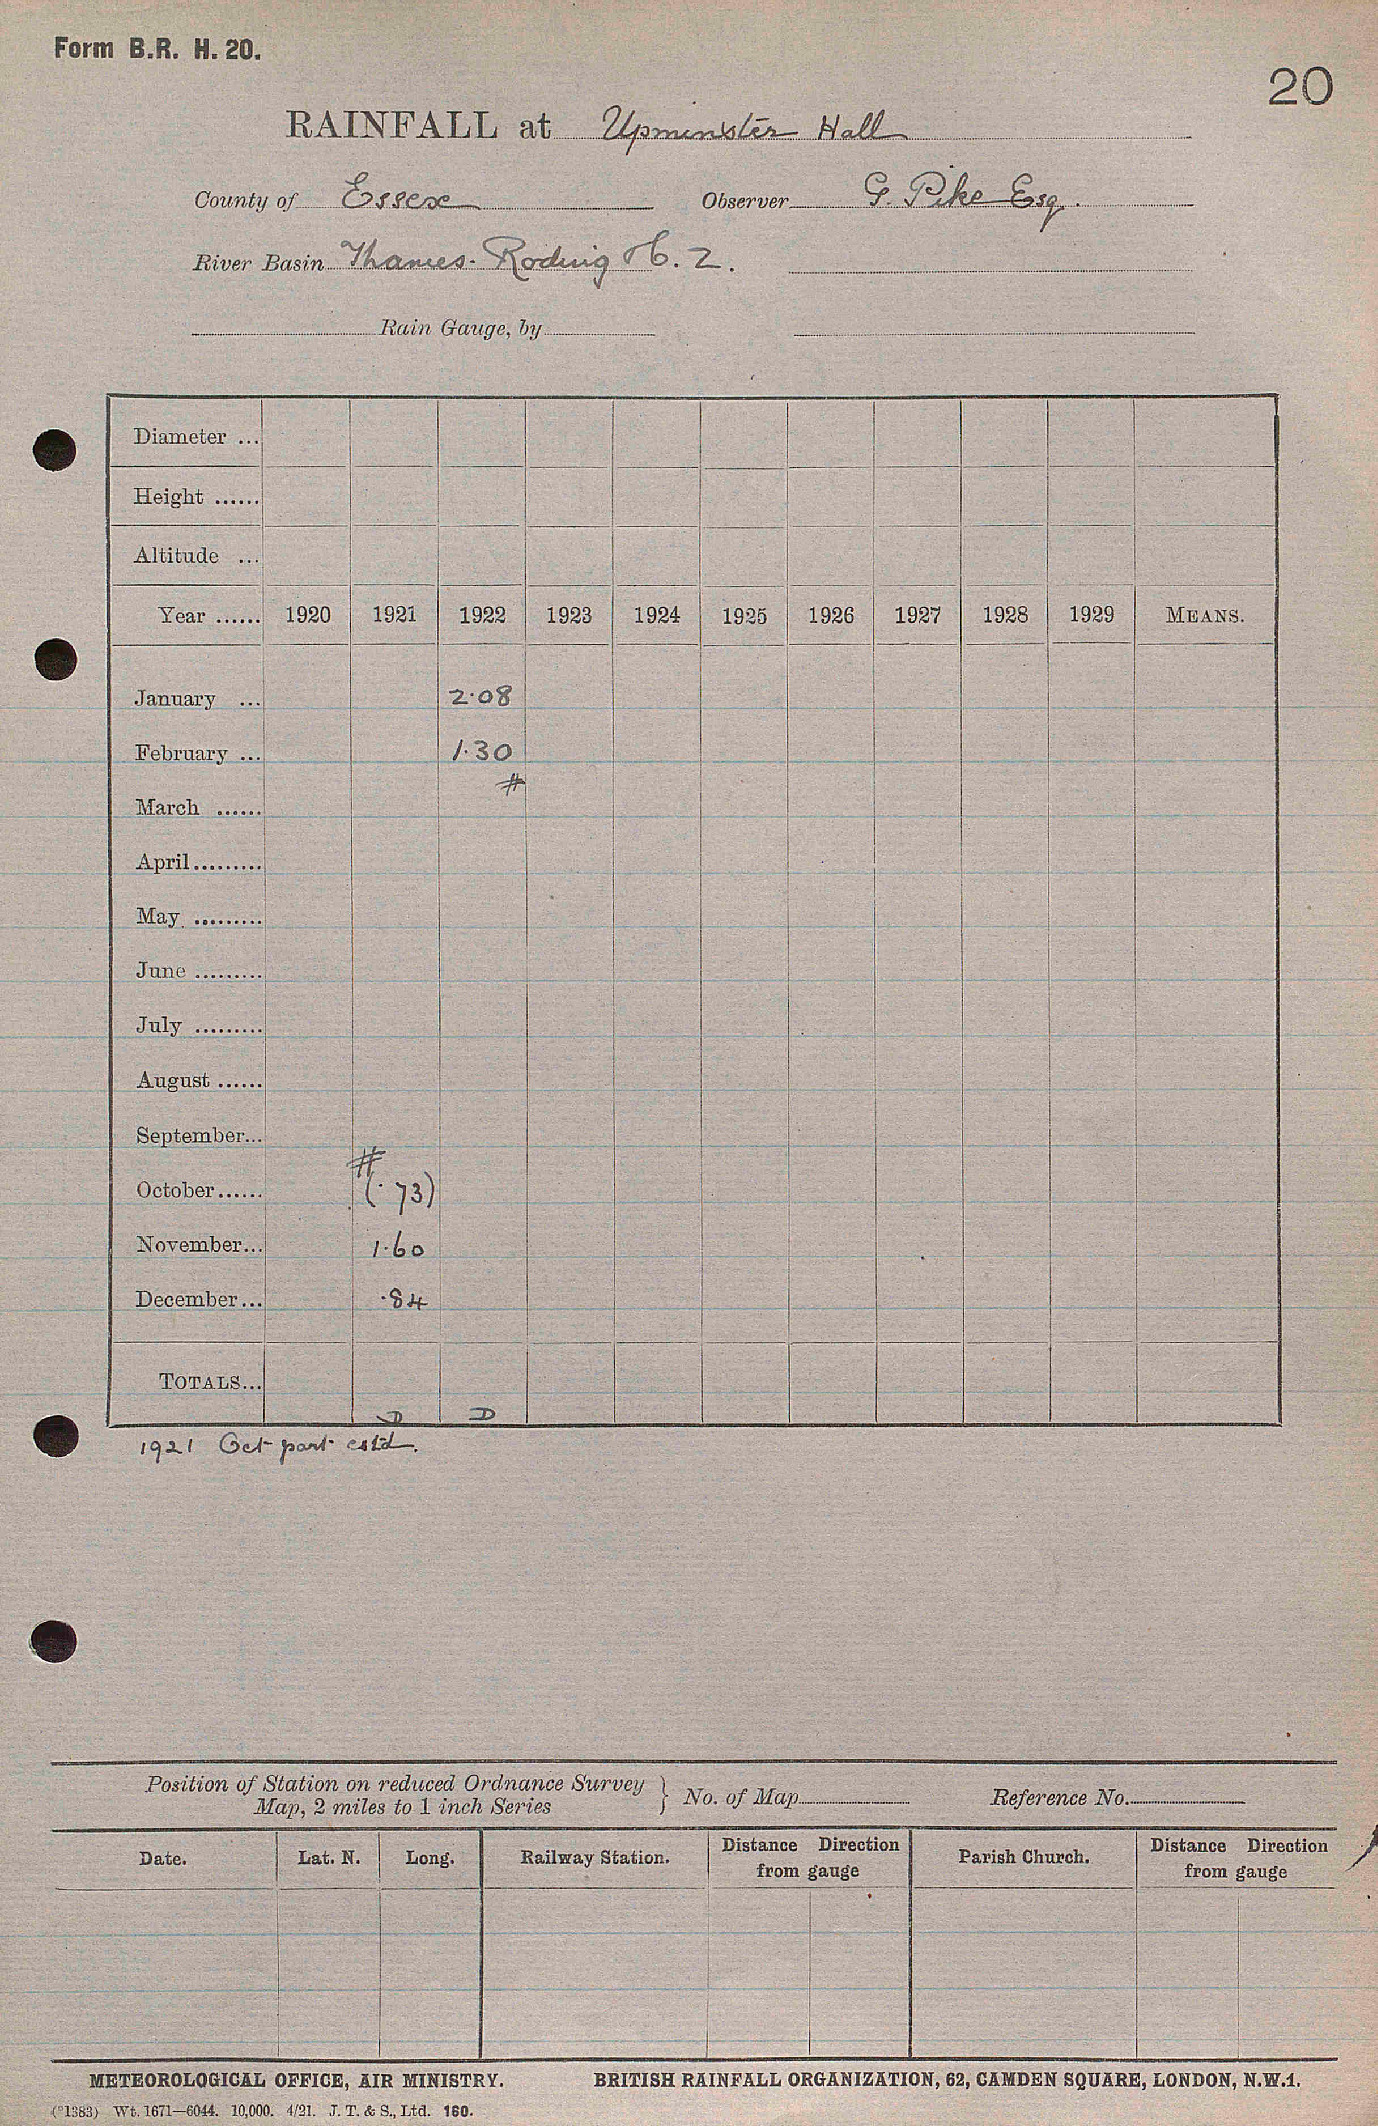 Form B.R. H. 20.
20
RAINFALL at Upminster Hall
County of Essex Observer G. Pike Esq.
River Basin Thames. Roding &c. 2.
Rain Gauge, by
Diameter ...
Height ......
Altitude ...
Year ...... 1920 1921 1922 1923 1924 1925 1926 1927 1928 1929 MEANS.
January ... 2·08
February ... 1·30
#
March ......
April.........
May .........
June .........
July .........
August ......
September...
#
October...... (·73)
November... 1·60
December... ·84
TOTALS...
D D
1921 Oct part estd.
Position of Station on reduced Ordnance Survey
Map, 2 miles to 1 inch Series } No. of Map Reference No.
Date. Lat. N. Long. Railway Station. Distance Direction from gauge Parish Church. Distance Direction from gauge
METEOROLOGICAL OFFICE, AIR MINISTRY. BRITISH RAINFALL ORGANIZATION, 62, CAMDEN SQUARE, LONDON, N.W.1.
(*1383) Wt. 1671—6044. 10,000. 4/21. J. T. & S., Ltd. 160.